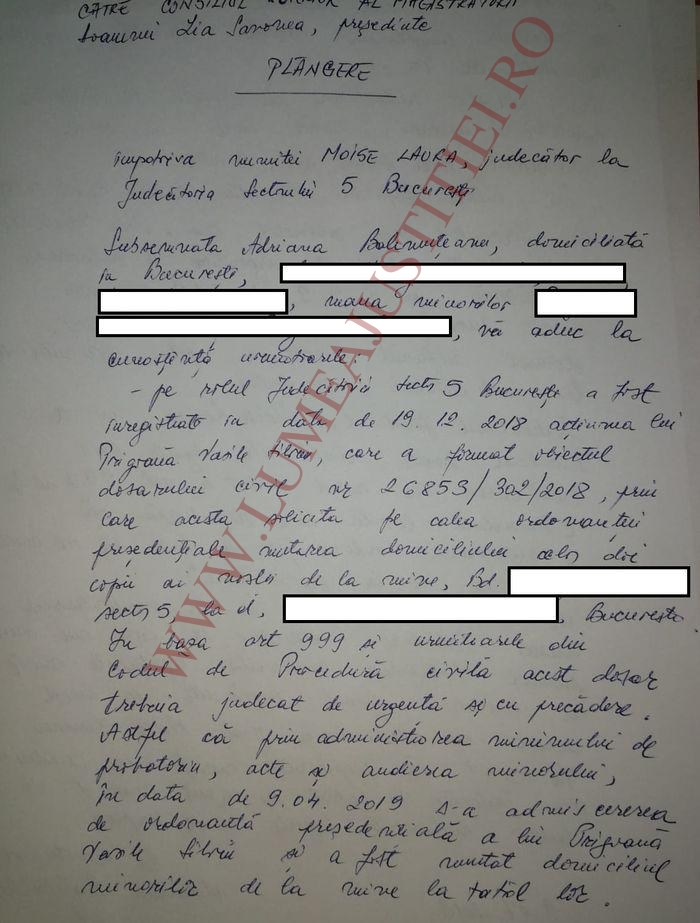 CĂTRE CONSILIUL AL MAGISTRATURII
Doamnei Lia Savonea, președinte
PLÂNGERE
împotriva numitei MOISE LAURA, judecător la
Judecătoria Sectorului 5 București
Subsemnata Adriana Bahmuțeanu, domiciliată
în București,
, mama minorilor
, vă aduc la
cunoștință următoarele:
- pe rolul Judecătoriei Sect 5 București a fost
înregistrată în data de 19. 12. 2018 acțiunea lui
Prigoană Vasile Silviu, care a format obiectul
dosarului civil nr 26853/302/2018, prin
care acesta solicita pe calea ordonanței
președențiale mutarea domiciliului celor doi
copii ai noștri de la mine, Bd.
sect 5, la el, , București.
În baza art 999 și următoarele din
Codul de Procedură civilă acest dosar
trebuia judecat de urgență și cu precădere.
Astfel că prin administrarea minimului de
probatoriu, acte și audierea minorului,
în data de 9.04. 2019 s-a admis cererea
de ordonanță președențială a lui Prigoană
Vasile Silviu și a fost mutat domiciliul
minorilor de la mine la tatăl lor.
WWW.LUMEAJUSTITIEI.RO